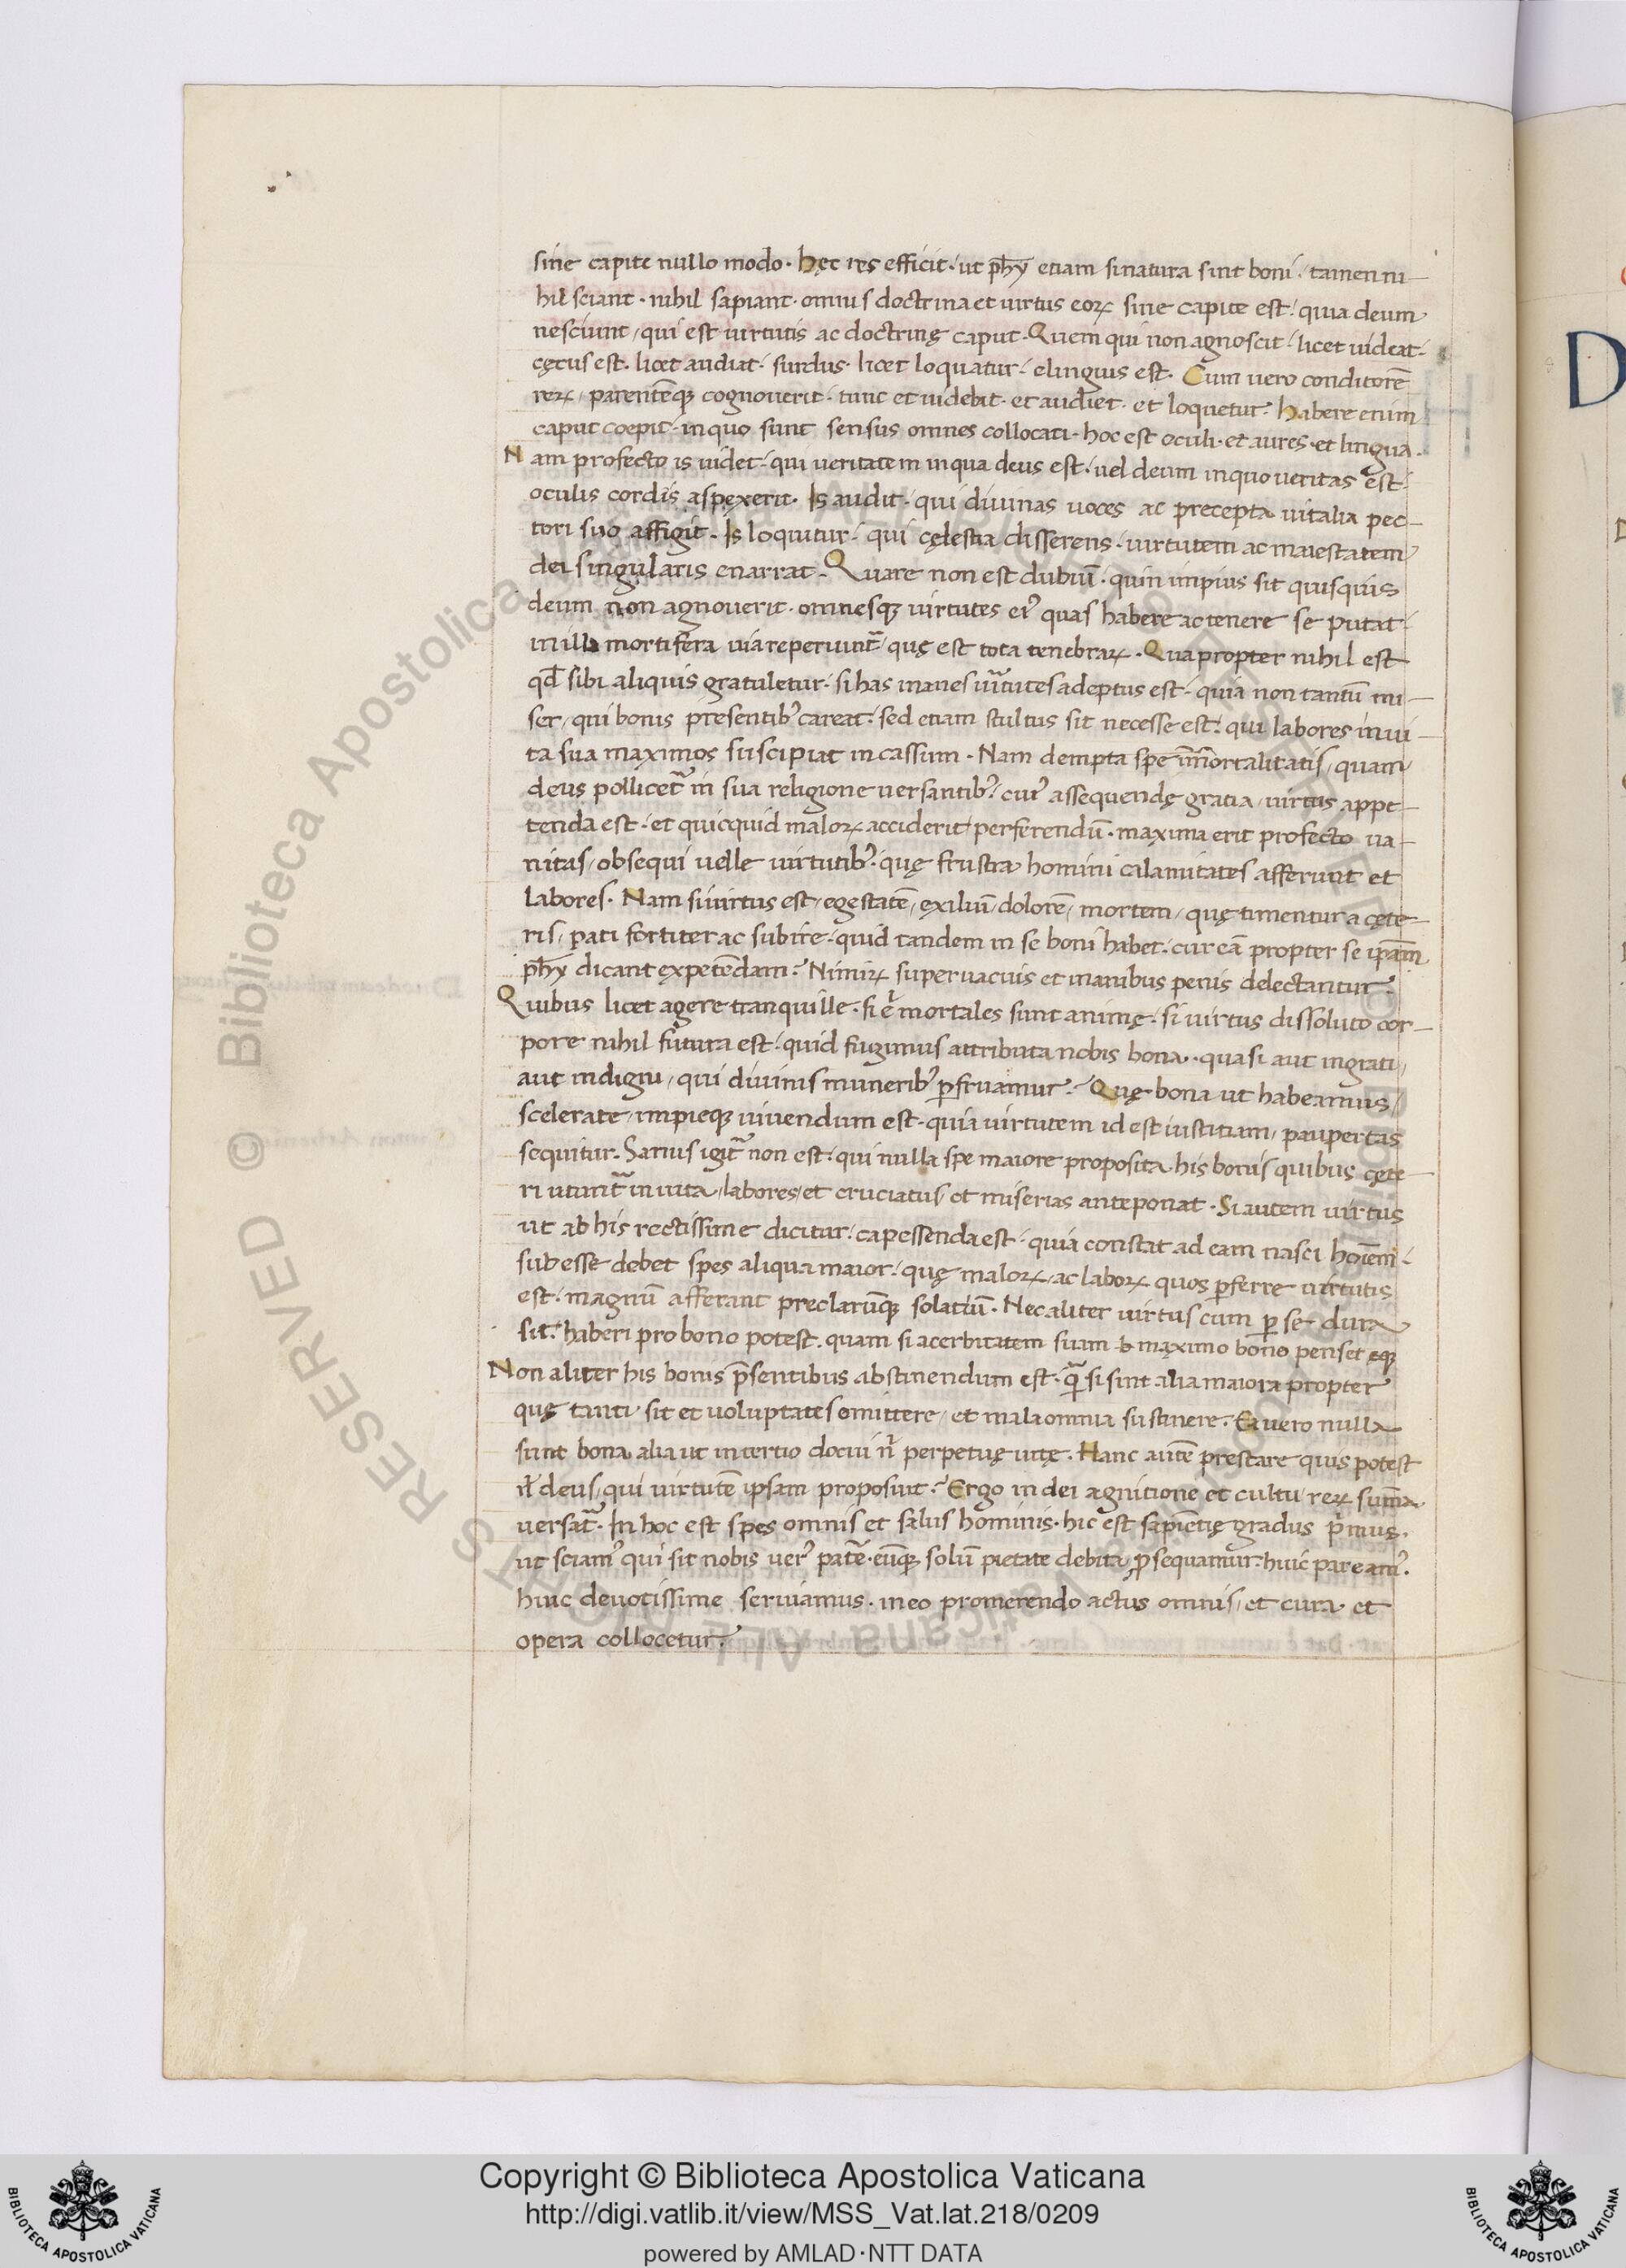 sine capite nullo modo. hęc res efficit. ut ph̅y etiam si natura sint boni. tamen ni-
hil sciant. nihil sapiant. omnis doctrina et virtus eoꝝ sine capite est. quia deum
nesciunt, qui est virtutis ac doctrinę caput. Quem qui non agnoscit. licet videat.
cęcus est. licet audiat. surdus. licet loquatur. elinguis est. Cum vero conditorē
reꝝ, parentēqꝫ cognoverit. tunc et videbit. et audiet. et loquetur. habere enim
caput coepit. in quo sunt sensus omnes collocati. hoc est oculi. et aures. et lingua.
Nam profecto is videt. qui veritatem in qua deus est. vel deum in quo veritas est.
oculis cordis aspexerit. Is audit. qui divinas voces ac precepta vitalia pec-
tori suo affigit. Is loquitur. qui cęlestia disserens. virtutem ac maiestatem
dei singularis enarrat. Quare non est dubiū. quin impius sit quisquis
deum non agnoverit. omnesqꝫ virtutes ei' quas habere ac tenere se putat.
in illa mortifera via reperiunt̃ quę est tota tenebraꝝ. Quapropter nihil est
qd̅ sibi aliquis gratuletur. si has inanes virtutes adeptus est. quia non tantū mi-
ser, qui bonis presentib' careat. sed etiam stultus sit necesse est. qui labores in vi-
ta sua maximos suscipiat incassum. Nam dempta spe īmortalitatis, quam
deus pollicet̃ in sua religione versantib'. cui' assequendę gratia, virtus appe-
tenda est. et quicquid maloꝝ acciderit, perferendū. maxima erit profecto va-
nitas, obsequi velle virtutib'. quę frustra homini calamitates afferunt et
labores. Nam si virtus est, egestatē, exiliū, dolorē, mortem, quę timentur a cęte-
ris, pati fortiter ac subire. quid tandem in se boni habet. cur eā propter se ip̅am
ph̅y dicant expetēdam? Nimiꝝ supervacuis et inanibus penis delectantur.
Quibus licet agere tranquille. si e̅ mortales sunt animę. si virtus dissoluto cor-
pore nihil futura est. quid fugimus attributa nobis bona. quasi aut ingrati,
aut indigni, qui divinis munerib' ꝑfruamur? Quę bona ut habeamus,
scelerate, impieqꝫ vivendum est. quia virtutem id est iustitiam, paupertas
sequitur. Sanus igit̃ non est. qui nulla spe maiore proposita his bonis quibus cęte-
ri utunt̃ in vita, labores, et cruciatus, et miserias anteponat. Si autem virtus
ut ab his rectissime dicitur. capessenda est. quia constat ad eam nasci hoīem.
subesse debet spes aliqua maior. quę maloꝝ, ac laboꝝ quos ꝑferre virtutis
est. magnū afferant preclarūqꝫ solatiū. Nec aliter virtus cum ꝑ se dura
sit. haberi pro bono potest. quam si acerbitatem suam maximo bono penset eqꝫ
Non aliter his bonis p̅sentibus abstinendum est. qua̅ si sint alia maiora propter
quę tanti sit et voluptates omittere, et mala omnia sustinere. Ea vero nulla
sunt bona alia ut in tertio docui n̅ perpetuę vitę. Hanc autē prestare quis potest
n̅ deus, qui virtutē ipsam proposuit? Ergo in dei agnitione et cultu, reꝝ sum̄a
versat̃. In hoc est spes omnis et salus hominis. hic est sapiētię gradus primus.
ut sciam' qui sit nobis ver' patē. eūqꝫ solū pietate debita ꝓsequamur. huic paream'.
huic devotissime serviamus. in eo promerendo actus omnis, et cura et
opera collocetur.
D
RESERVED © Biblioteca Apostolica Vaticana
Copyright © Biblioteca Apostolica Vaticana
http://digi.vatlib.it/view/MSS_Vat.lat.218/0209
powered by AMLAD·NTT DATA
BIBLIOTECA APOSTOLICA VATICANA
BIBLIOTECA APOSTOLICA VATICANA